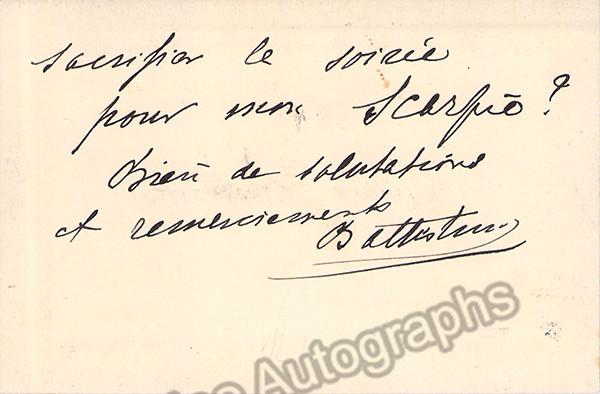 sacrifier le soirée
pour mon Scarpia?
Bien de salutations
et remerciements
Battistini
Autographs